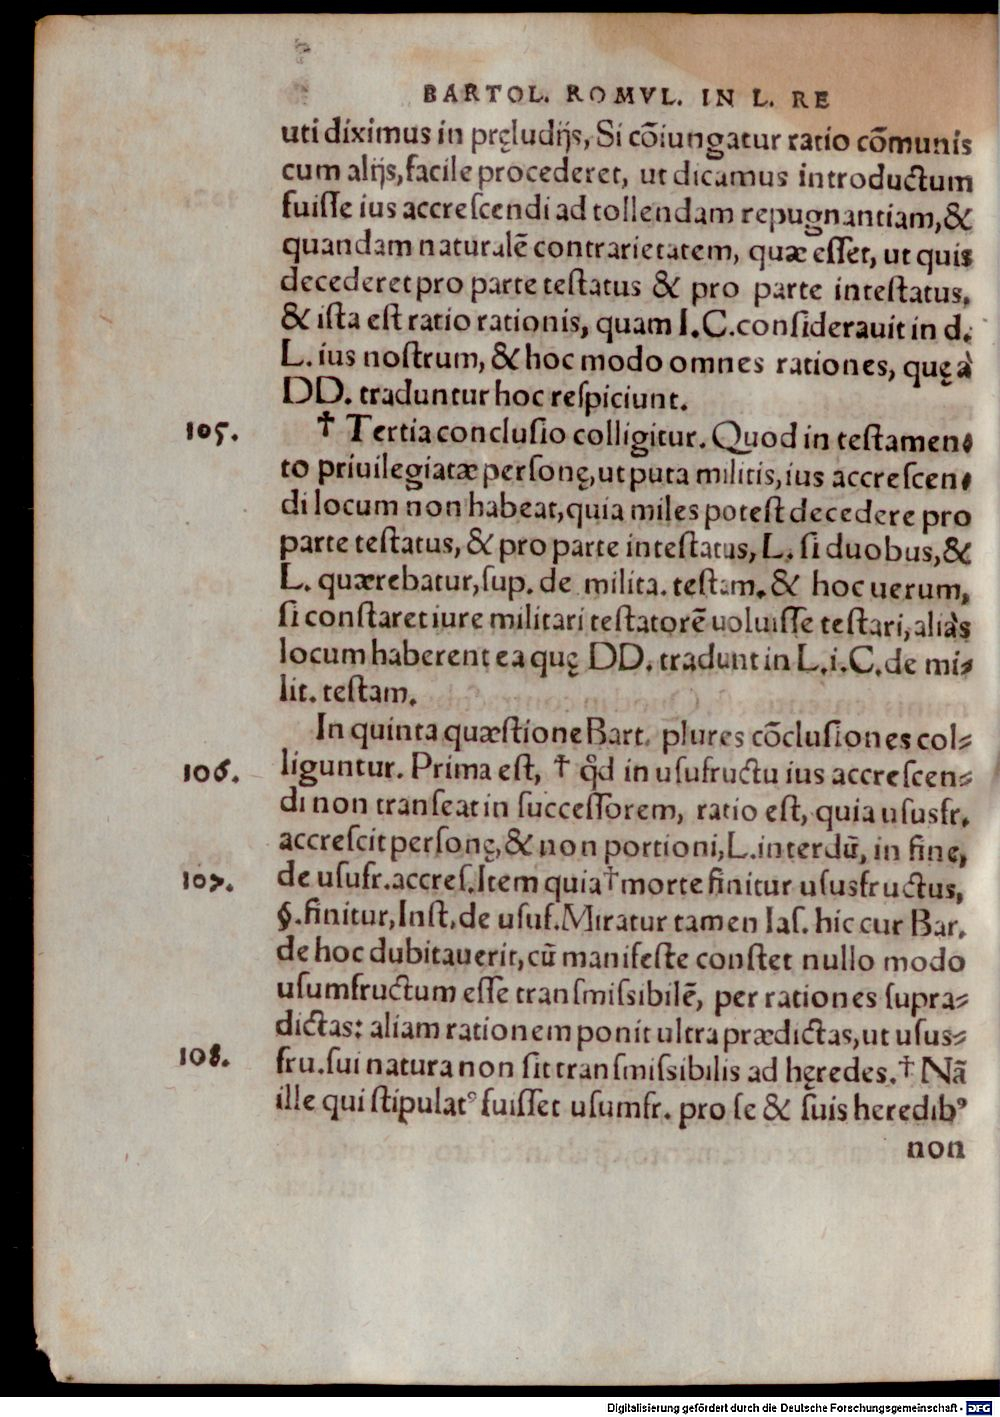 BARTOL. ROMVL. IN L. RE
uti diximus in pręludijs, Si cōiungatur ratio cōmunis
cum alijs, facile procederet, ut dicamus introductum
fuiſſe ius accreſcendi ad tollendam repugnantiam, &
quandam naturalē contrarietatem, quæ eſſet, ut quis
decederet pro parte teſtatus & pro parte inteſtatus,
& iſta eſt ratio rationis, quam I.C. conſiderauit in d.
L. ius noſtrum, & hoc modo omnes rationes, quę à
DD. traduntur hoc reſpiciunt.
105. † Tertia concluſio colligitur. Quod in teſtamen⸗
to priuilegiatæ perſonę, ut puta militis, ius accreſcen⸗
di locum non habeat, quia miles poteſt decedere pro
parte teſtatus, & pro parte inteſtatus, L. ſi duobus, &
L. quærebatur, ſup. de milita. teſtam. & hoc uerum,
ſi conſtaret iure militari teſtatorē uoluiſſe teſtari, aliàs
locum haberent ea quę DD. tradunt in L.i.C. de mi⸗
lit. teſtam.
In quinta quæſtione Bart. plures cōcluſiones col⸗
106. liguntur. Prima eſt, † qd̓ in uſufructu ius accreſcen⸗
di non tranſeat in ſucceſſorem, ratio eſt, quia uſusfr.
accreſcit perſonę, & non portioni, L. interdū, in fine,
107. de uſufr. accreſ. Item quia † morte finitur uſusfructus,
§. finitur, Inſt. de uſuf. Miratur tamen Iaſ. hic cur Bar.
de hoc dubitauerit, cū manifeſte conſtet nullo modo
uſumfructum eſſe tranſmiſsibilē, per rationes ſupra⸗
dictas: aliam rationem ponit ultra prædictas, ut uſus⸗
108. fru. ſui natura non ſit tranſmiſsibilis ad hęredes. † Nā
ille qui ſtipulatꝰ fuiſſet uſumfr. pro ſe & ſuis heredibꝰ
non
Digitalisierung gefördert durch die Deutsche Forschungsgemeinschaft - DFG